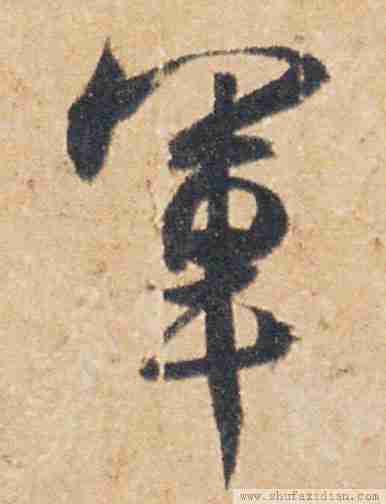 軍
www.shufazidian.com